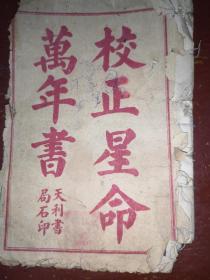 校正星命
萬年書
天利書
局石印